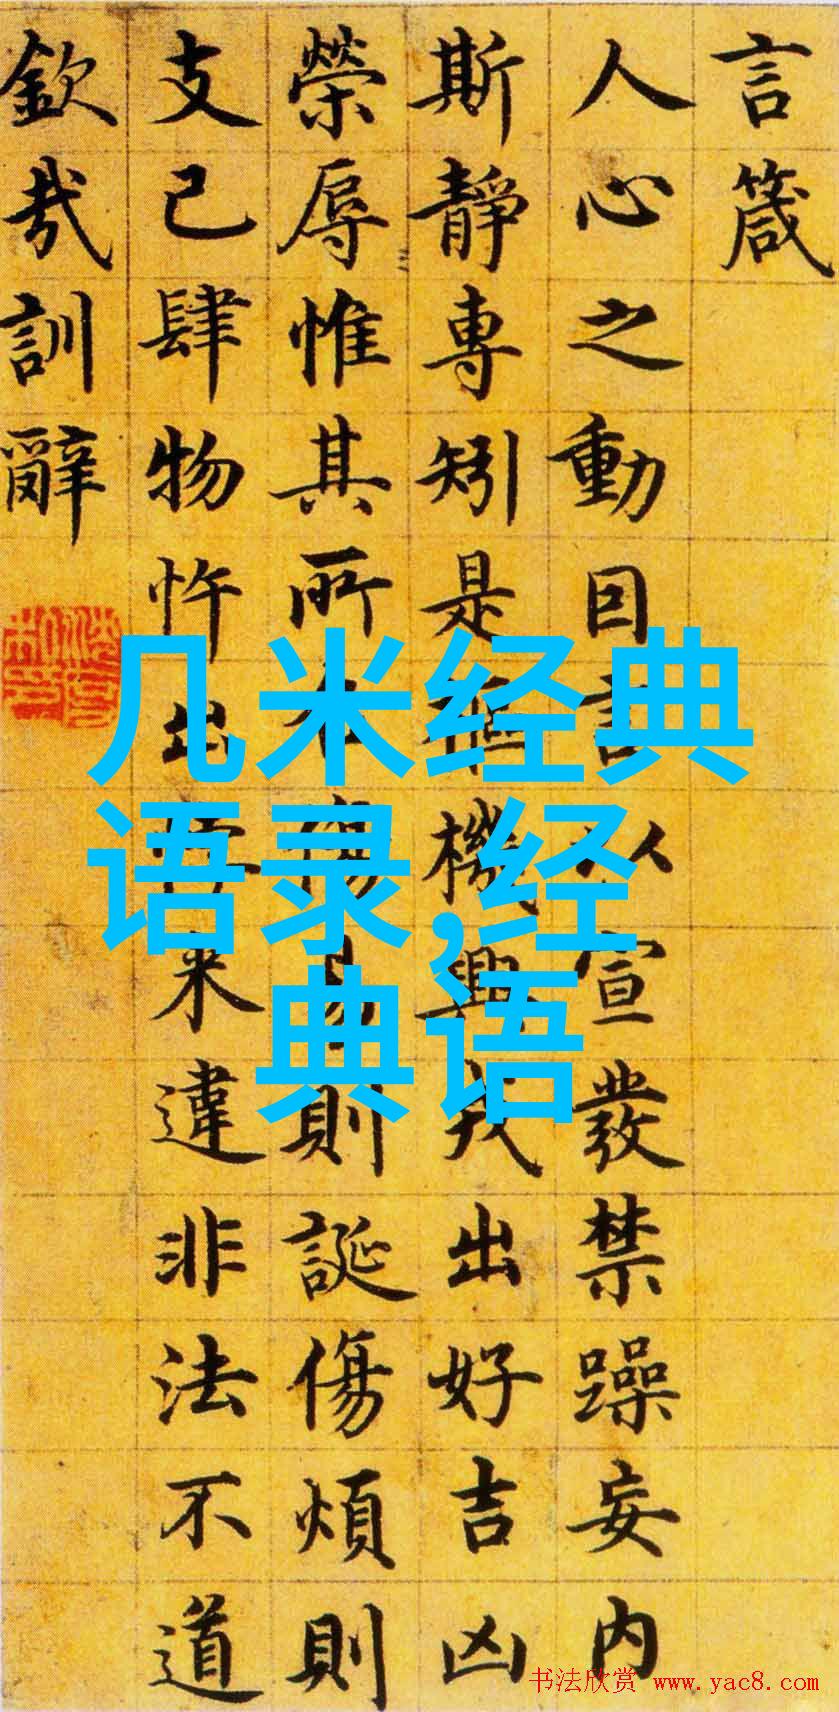 言箴
人心之動因言以宣發禁躁妄内
斯靜專矧是樞機興戎出好吉凶
榮辱惟其所召傷易則誕傷煩則
支己肆物忤出悖来違非法不道
欽哉訓辭
几米经典
语录,经
典语
书法欣赏 www.yac8.com